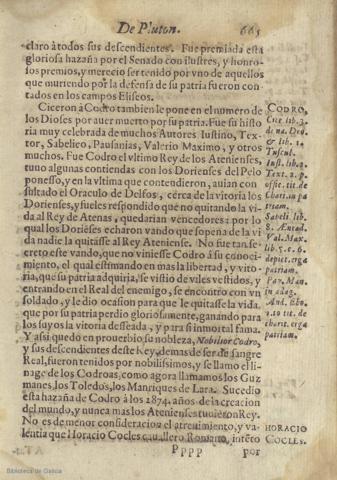 De Pluton.
665
claro à todos sus descendientes. Fue premiada esta
gloriosa hazaña por el Senado con ilustres, y honro-
sos premios, y merecio ser tenido por vno de aquellos
que muriendo por la defensa de su patria fueron con-
tados en los campos Eliseos.
Ciceron à Codro tambien le pone en el numero de
los Dioses por auer muerto por su patria. Fue su histo
ria muy celebrada de muchos Autores Iustino, Tex-
tor, Sabelico, Pausanias, Valerio Maximo, y otros
muchos. Fue Codro el vltimo Rey de los Atenienses,
tuuo algunas contiendas con los Dorienses del Pelo
ponesso, y en la vltima que contendieron, auian con-
sultado el Oraculo de Delfos, cerca de la vitoria los
Dorienses, y fueles respondido que no quitando la vi-
da al Rey de Atenas, quedarian vencedores: por lo
qual los Dorieses echaron vando que so pena de la vi
da nadie la quitasse al Rey Ateniense. No fue tan se-
creto este vando, que no viniesse Codro à su conoci-
miento, el qual estimando en mas la libertad, y vito-
ria, que su patria adquiria, se vistio de viles vestidos, y
entrando en el Real del enemigo, se encontrò con vn
soldado, y le dio ocasion para que le quitasse la vida,
que por su patria perdio gloriosamente, ganando para
los suyos la vitoria desseada, y para si inmortal fama.
Y assi quedò en prouerbio su nobleza, Nobilior Codro,
y sus descendientes deste Rey, demas de ser de sangre
Real, fueron tenidos por nobilissimos, y se llamo el li-
nage de los Codros, como agora llamamos los Guz
manes, los Toledos, los Manriques de Lara. Sucedio
esta hazaña de Codro à los 2874. años de la creacion
del mundo, y nunca mas los Atenienses tuuieron Rey.
No es de menor consideracion el atreuimiento, y va-
lentia que Horacio Cocles cauallero Romano, intẽtò
Pppp
por
CODRO,
Cic. lib. 3.
de na. Deo.
& lib. 1.
Tuscul.
Iust. lib. 2.
Text. 2. p.
offic. tit. de
Chari. in pa
triam.
Sabeli. lib.
8. Ænead.
Val. Max.
lib. 5. c. 6.
de piet. erga
patriam.
Pax. Man.
in adag.
And. Ebo.
2. to tit. de
charit. erga
patriam.
HORACIO
COCLES.
Biblioteca de Galicia